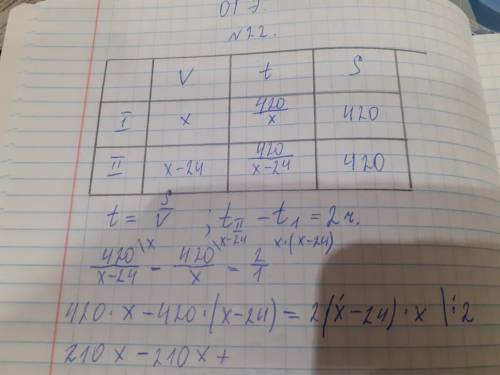 №22.
V t S
I x 420/x 420
II x-24 420/x-24 420
t = S/V ; t_II - t_1 = 2ч.
420/x-24 \x - 420/x \x-24 = 2/1 x·(x-24)
420·x-420·(x-24) = 2(x-24)·x |:2
210x-210x+